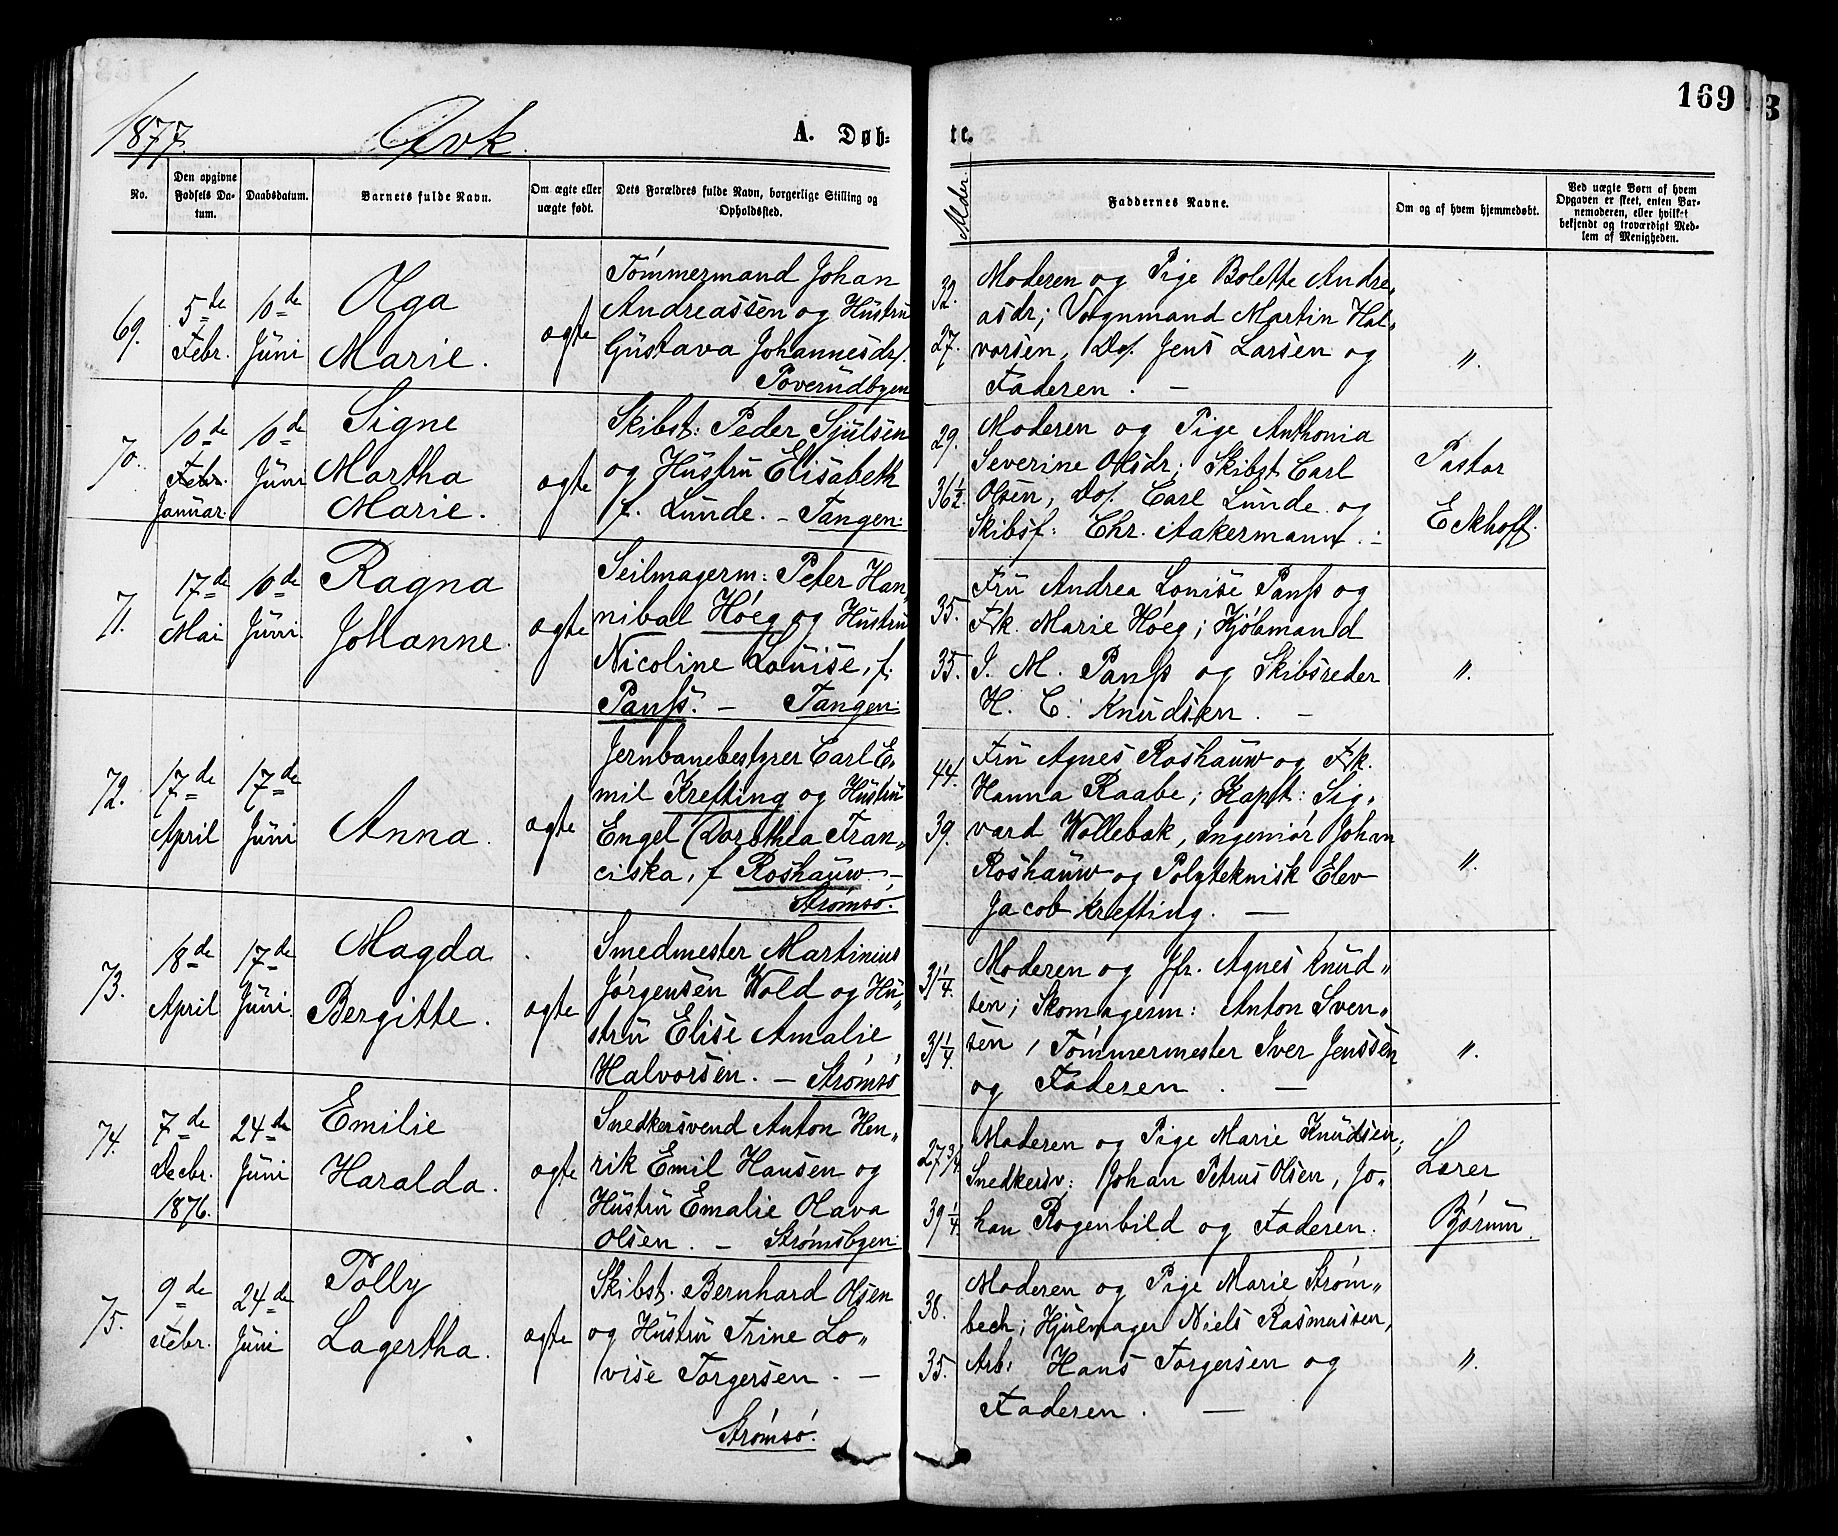 169
3
1877. Qvk. A. Døb- te.
No.
Den opgivne Fødsels Da-tum.
Daabsdatum.
Barnets fulde Navn.
Om ægte eller uægte født.
Dets Forældres fulde Navn, borgerlige Stilling og Opholdssted.
Alder.
Faddernes Navne.
Om og af hvem hjemmedøbt.
Ved uægte Børn af hvem
Opgaven er skeet, enten Bar-
nemoderen, eller hvilket
bekjendt og troværdigt Med-
lem af Menigheden.
69.
5te Febr.
10de Juni
Olga
Marie.
ægte
Tømmermand Johan
Andreassen og Hustru
Gustava Johannesdr.
Poverudbyen
32.
27.
Moderen og Pige Bolette Andre„
asdr; Vognmand Martin Hal„
vorsen, Do. Jens Larsen og
Faderen. —
„.
70.
10de
Febr.
Januar.
10de Juni
Signe
Martha
Marie.
ægte
Skibst: Peder Sjulsen
og Hustru Elisabeth
f. Lunde. – Tangen.
29.
36½.
Moderen og Pige Anthonia
Severine Olsdr; Skibst Carl
Olsen, Do. Carl Lunde og
Skibsf: Chr. Aakermann. –
Pastor
Eckhoff.
71.
17de Mai
10de Juni
Ragna
Johanne.
ægte
Seilmagerm: Peter Han„
nibal Höeg og Hustru
Nicoline Louise, f.
Panss. – Tangen.
35.
35.
Fru Andrea Louise Panss og
Frk. Marie Höeg; Kjöbmand
J. M. Panss og Skibsreder
H. C. Knudsen. —
„.
72.
17de April
17de Juni
Anna.
ægte
Jernbanebestyrer Carl E„
mil Krefting og Hustru
Engel Dorothea Fran„
ciska, f Roshauw –
Strømsø.
44.
39.
Fru Agnes Roshauw og Frk.
Hanna Raabe; Kapt: Sig„
vard Wollebæk, Ingeniør Johan
Roshauw og Polyteknisk Elev
Jacob Krefting. —
„.
73.
18de April
17de Juni
Magda
Bergitte.
ægte
Smedmester Martinius
Jörgensen Wold og Hu„
stru Elise Amalie
Halvorsen. – Strømsø
31¼.
31¼.
Moderen og Jfr. Agnes Knud„
sen; Skomagerm: Anton Sven„
sen, Tømmermester Iver Jenssen
og Faderen. —
„.
74.
7de
Decbr.
1876.
24de Juni
Emilie
Haralda.
ægte
Snedkersvend Anton Hen„
rik Emil Hansen og
Hustru Emalie Olava
Olsen. – Strømsbyen.
27¾.
39¼.
Moderen og Pige Marie Knudsen;
Snedkersv: Johan Petrus Olsen, Jo„
han Rogenbild og Faderen.
Lærer
Bjørum.
75.
9de Febr.
24de Juni
Polly
Lagertha.
ægte
Skibst. Bernhard Olsen
og Hustru Trine Lo„
vise Torgersen. –
Strømsø.
38.
35.
Moderen og Pige Marie Strøm„
bech; Hjulmager Niels Rasmussen,
Arb: Hans Torgersen og
Faderen. —
„.